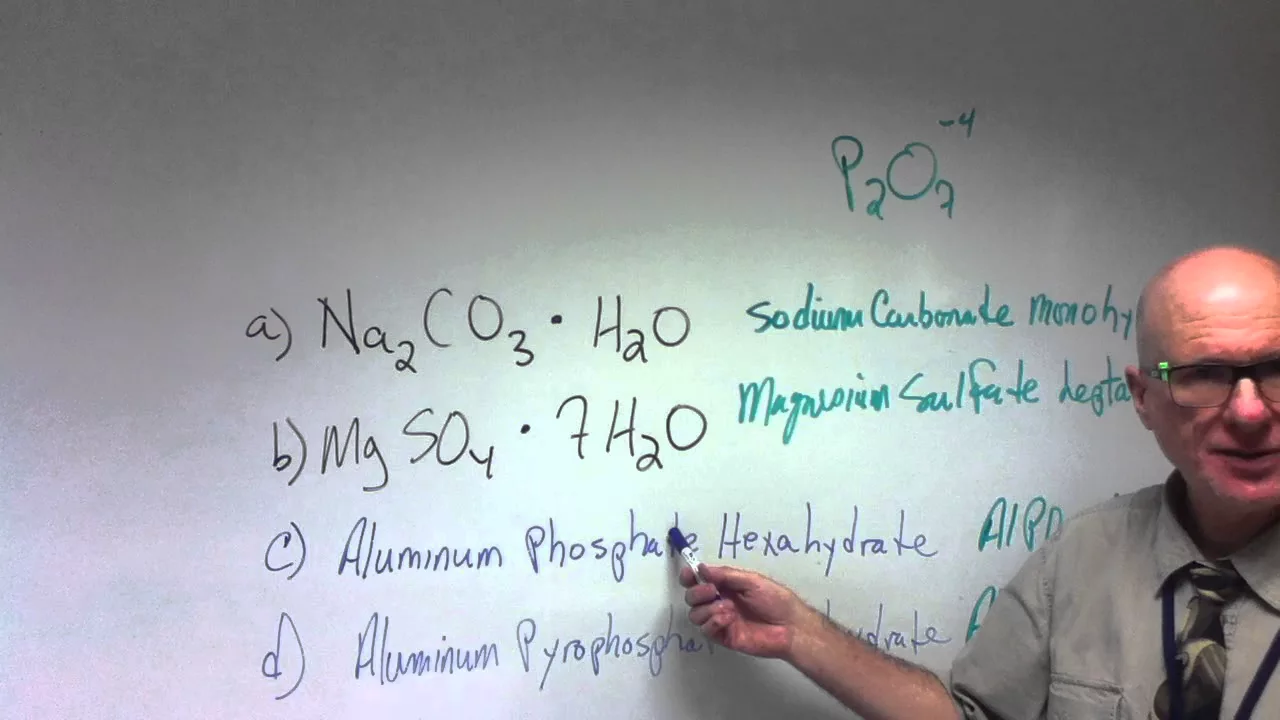 P₂O₇⁻⁴
a) Na₂CO₃ · H₂O Sodium Carbonate monohy
b) MgSO₄ · 7H₂O Magnesium Sulfate hepta
c) Aluminum Phosphate Hexahydrate AlPO
d) Aluminum Pyrophospha hydrate A